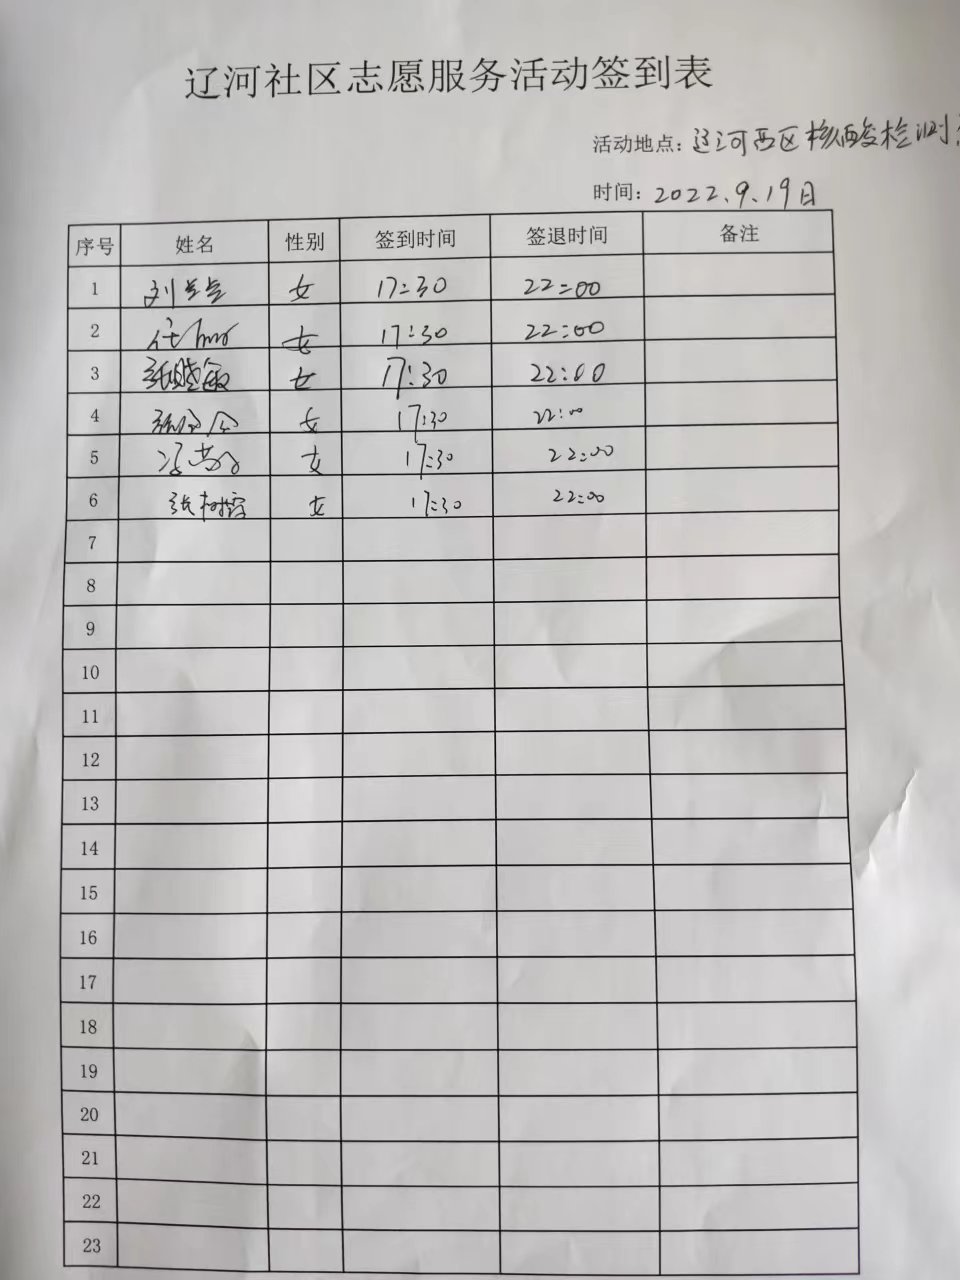 辽河社区志愿服务活动签到表
活动地点：辽河西区核酸检测
时间：2022.9.19日
序号 姓名 性别 签到时间 签退时间 备注
1 刘 女 17:30 22:00
2 任 女 17:30 22:00
3 张晓敏 女 17:30 22:00
4 女 17:30 22:00
5 冯 女 17:30 22:00
6 张树 女 17:30 22:00
7
8
9
10
11
12
13
14
15
16
17
18
19
20
21
22
23